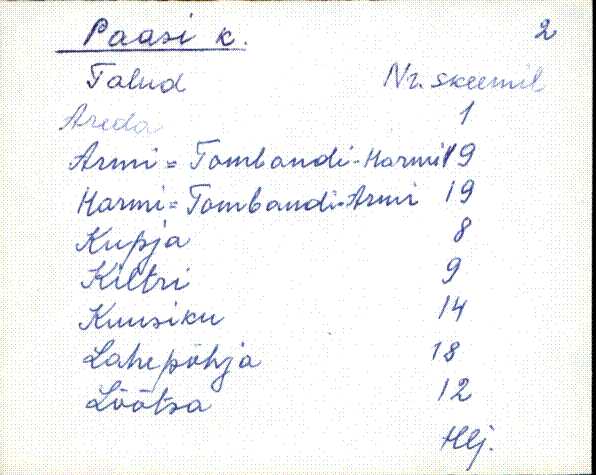 Paasi k. 2
Talud Nr. skeemil
Areda 1
Armi = Tombandi-Harmi 19
Harmi = Tombandi-Armi 19
Kupja 8
Kiltri 9
Kuusiku 14
Lahepõhja 18
Lõõtsa 12
Hlj.